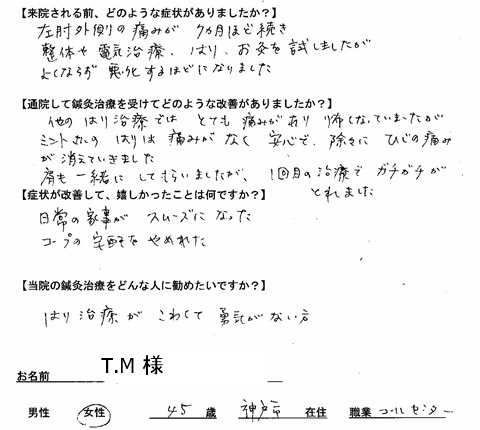 【来院される前、どのような症状がありましたか?】
左肘外側の痛みが 7カ月ほど続き
整体や電気治療、はり、お灸を試しましたが
よくならず 悪化するほどになりました
【通院して鍼灸治療を受けてどのような改善がありましたか?】
他のはり治療では とても痛みがあり 怖くなっていましたが
ミントさんの はりは 痛みがなく 安心で、除々に ひじの痛み
が消えていきました
肩も一緒にしてもらいましたが、1回目の治療で ガチガチが
とれました
【症状が改善して、嬉しかったことは何ですか?】
日常の家事が スムーズになった
コープの宅配をやめれた
【当院の鍼灸治療をどんな人に勧めたいですか?】
はり治療が こわくて 勇気がない方
お名前 T.M 様
男性 女性 45 歳 神戸市 在住 職業 コールセンター